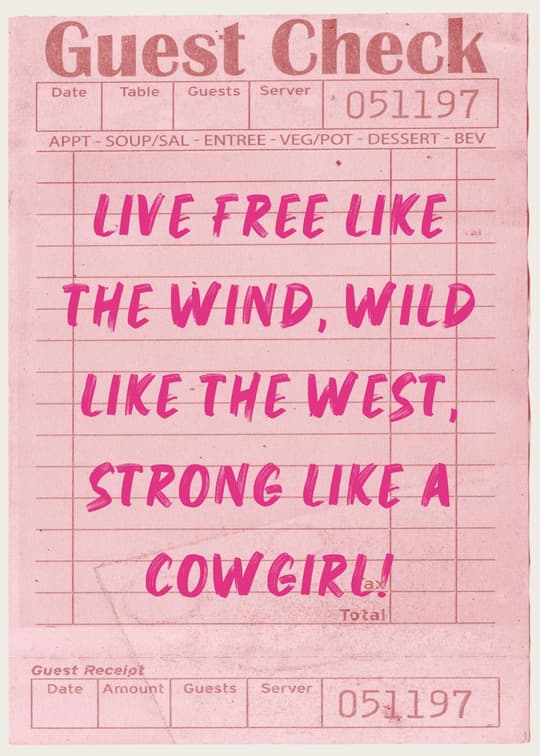 Guest Check
Date Table Guests Server 051197
APPT - SOUP/SAL - ENTREE - VEG/POT - DESSERT - BEV
LIVE FREE LIKE
THE WIND, WILD
LIKE THE WEST,
STRONG LIKE A
COWGIRL!
ax
Total
Guest Receipt
Date Amount Guests Server 051197